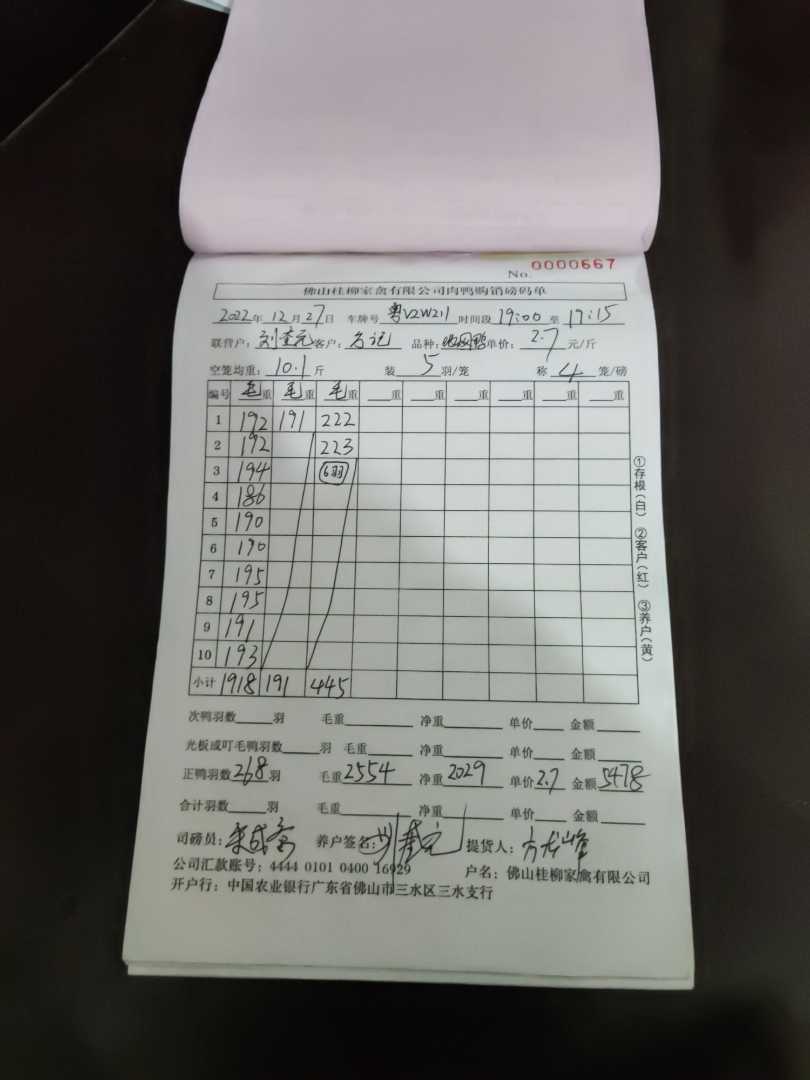 No. 0000667
佛山桂柳家禽有限公司肉鸭购销磅码单
2022年 12月 27日 车牌号 粤V2W211 时间段 19:00 至 19:15
联营户: 客户: 方记 品种: 单价: 2.7 元/斤
空笼均重: 10.1 斤 装 5 羽/笼 称 4 笼/磅
编号 毛重 毛重 毛重 重 重 重 重 重 重
1 192 191 222
2 192 223
3 194 6羽
4 186
5 190
6 190
7 195
8 195
9 191
10 193
小计 1918 191 445
①存根(白) ②客户(红) ③养户(黄)
次鸭羽数 羽 毛重 净重 单价 金额
光板或叮毛鸭羽数 羽 毛重 净重 单价 金额
正鸭羽数 268 羽 毛重 2554 净重 2029 单价 2.7 金额 5478
合计羽数 羽 毛重 净重 单价 金额
司磅员: 养户签名: 提货人:
公司汇款账号: 4444 0101 0400 16929 户名: 佛山桂柳家禽有限公司
开户行: 中国农业银行广东省佛山市三水区三水支行